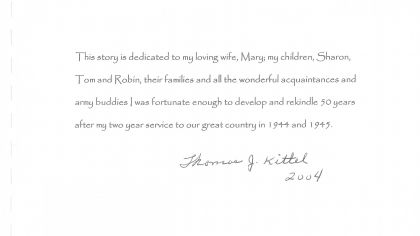 This story is dedicated to my loving wife, Mary; my children, Sharon,
Tom and Robin, their families and all the wonderful acquaintances and
army buddies I was fortunate enough to develop and rekindle 50 years
after my two year service to our great country in 1944 and 1945.
Thomas J. Kittel
2004